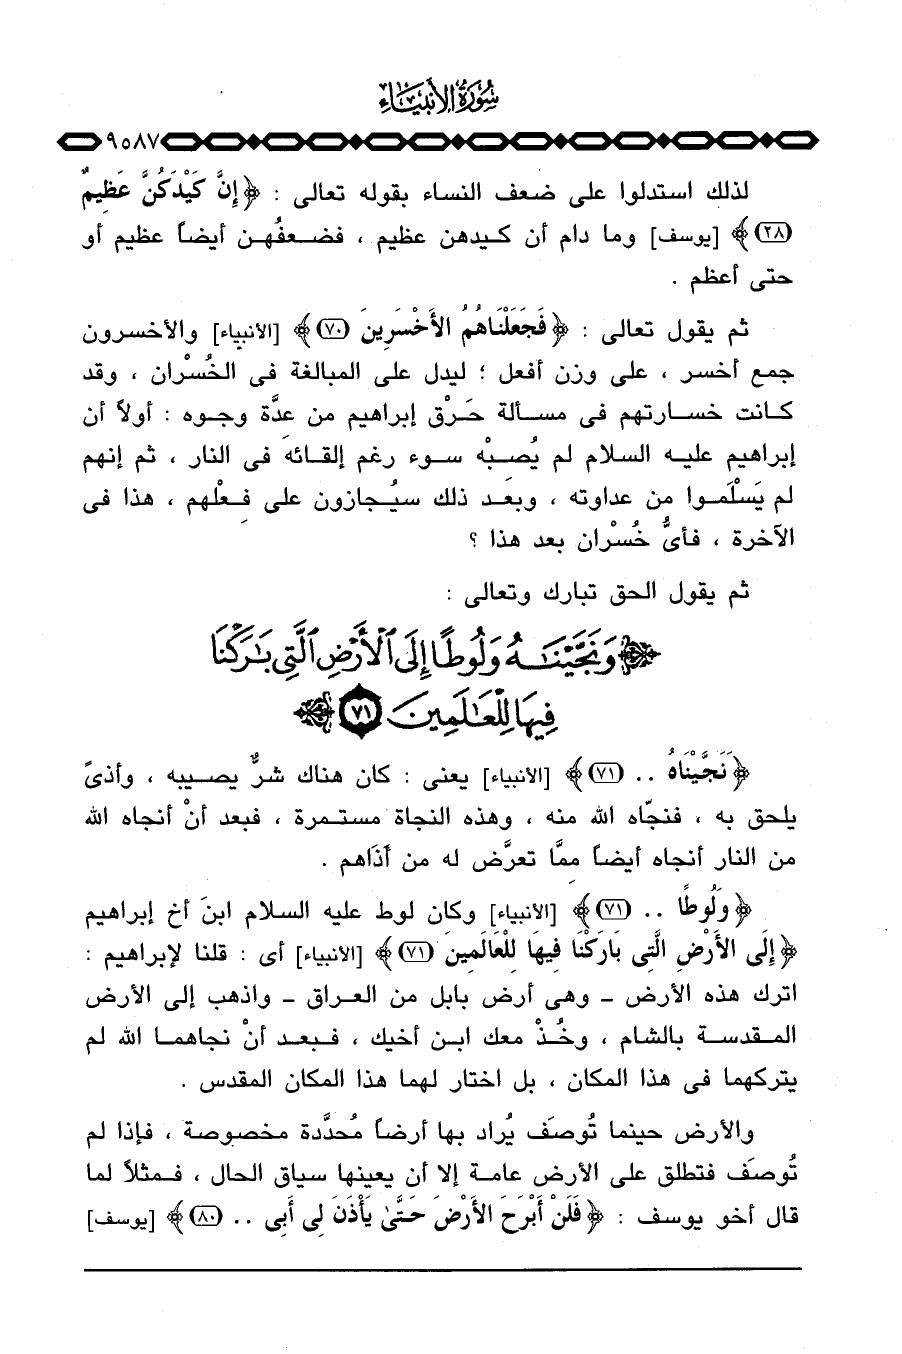 سُورَةُ الأنبيَاء
٩٥٨٧
لذلك استدلوا على ضعف النساء بقوله تعالى : ﴿ إِنَّ كَيْدَكُنَّ عَظِيمٌ
(٢٨) ﴾ [يوسف] وما دام أن كيدهن عظيم ، فضعفُهن أيضاً عظيم أو
حتى أعظم .
ثم يقول تعالى : ﴿ فَجَعَلْنَاهُمُ الأَخْسَرِينَ (٧٠) ﴾ [الأنبياء] والأخسرون
جمع أخسر ، على وزن أفعل ؛ ليدل على المبالغة فى الخُسْران ، وقد
كانت خسارتهم فى مسألة حَرْق إبراهيم من عدَّة وجوه : أولاً أن
إبراهيم عليه السلام لم يُصِبْه سوء رغم إلقائه فى النار ، ثم إنهم
لم يَسْلَموا من عداوته ، وبعد ذلك سيُجازون على فِعْلهم ، هذا فى
الآخرة ، فأىُّ خُسْران بعد هذا ؟
ثم يقول الحق تبارك وتعالى :
﴿ وَنَجَّيْنَـٰهُ وَلُوطًا إِلَى ٱلْأَرْضِ ٱلَّتِى بَـٰرَكْنَا
فِيهَا لِلْعَـٰلَمِينَ ٧١ ﴾
﴿ نَجَّيْنَاهُ .. (٧١) ﴾ [الأنبياء] يعنى : كان هناك شرٌّ يصيبه ، وأذىً
يلحق به ، فنجَّاه الله منه ، وهذه النجاة مستمرة ، فبعد أنْ أنجاه الله
من النار أنجاه أيضاً ممَّا تعرَّض له من أذَاهم .
﴿ وَلُوطًا .. (٧١) ﴾ [الأنبياء] وكان لوط عليه السلام ابنَ أخِ إبراهيم
﴿ إِلَى الأَرْضِ الَّتِي بَارَكْنَا فِيهَا لِلْعَالَمِينَ (٧١) ﴾ [الأنبياء] أى : قلنا لإبراهيم :
اترك هذه الأرض - وهى أرض بابل من العراق - واذهب إلى الأرض
المقدسة بالشام ، وخُذْ معك ابن أخيك ، فبعد أنْ نجاهما الله لم
يتركهما فى هذا المكان ، بل اختار لهما هذا المكان المقدس .
والأرض حينما تُوصَف يُراد بها أرضاً مُحدَّدة مخصوصة ، فإذا لم
تُوصَف فتطلق على الأرض عامة إلا أن يعينها سياق الحال ، فمثلاً لما
قال أخو يوسف : ﴿ فَلَنْ أَبْرَحَ الأَرْضَ حَتَّىٰ يَأْذَنَ لِى أَبِى .. (٨٠) ﴾ [يوسف]